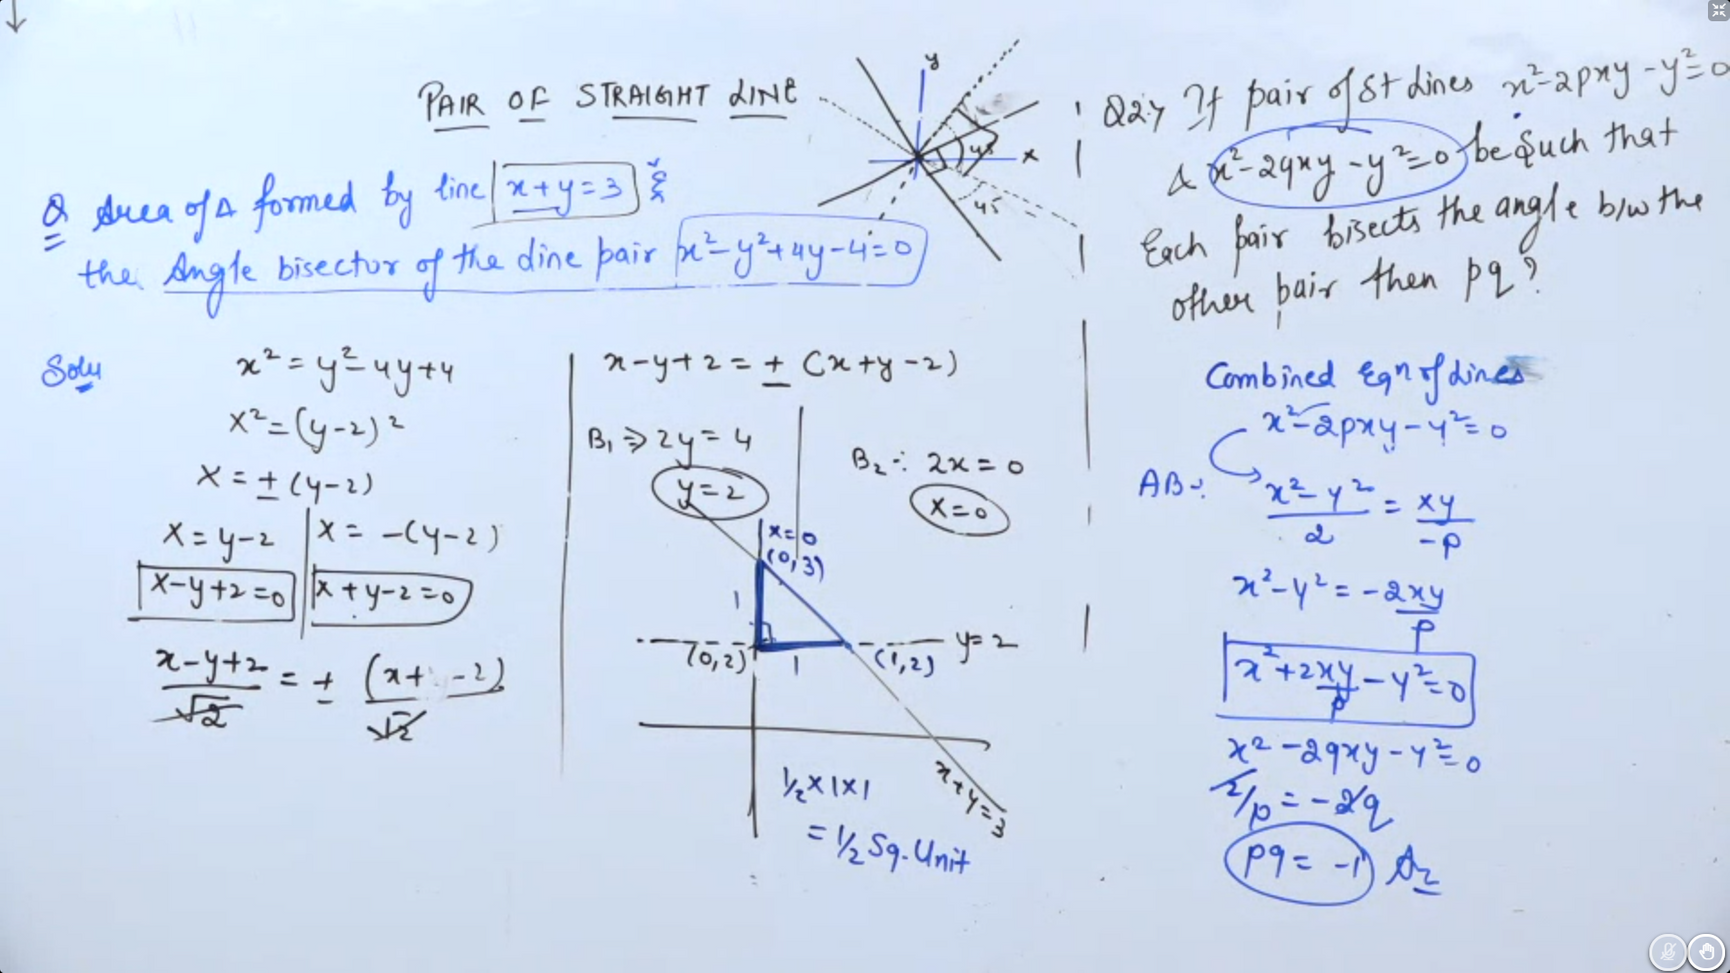 PAIR OF STRAIGHT LINE
Q Area of Δ formed by line x+y=3 &
the Angle bisector of the line pair x²-y²+4y-4=0
Solu
x² = y²-4y+4
x² = (y-2)²
x = ± (y-2)
x = y-2
x-y+2=0
x = -(y-2)
x+y-2=0
x-y+2/√2 = ± (x+ -2)/√2
x-y+2 = ± (x+y-2)
B₁ ⇒ 2y = 4
y=2
B₂ :- 2x = 0
x=0
x=0
(0,3)
1
(0,2)
1
(1,2)
y=2
x+y=3
½×1×1
= ½ Sq. Unit
y
x
45
45
Q2:7 If pair of St Lines x²-2pxy-y²=0
& x²-2qxy-y²=0 be Such that
Each pair bisects the angle b/w the
other pair then pq ?
Combined Eqⁿ of Lines
x²-2pxy-y²=0
AB:- x²-y²/2 = xy/-p
x²-y² = -2xy/p
x²+2xy/p-y²=0
x²-2qxy-y²=0
2/p = -2q
pq = -1 Ans